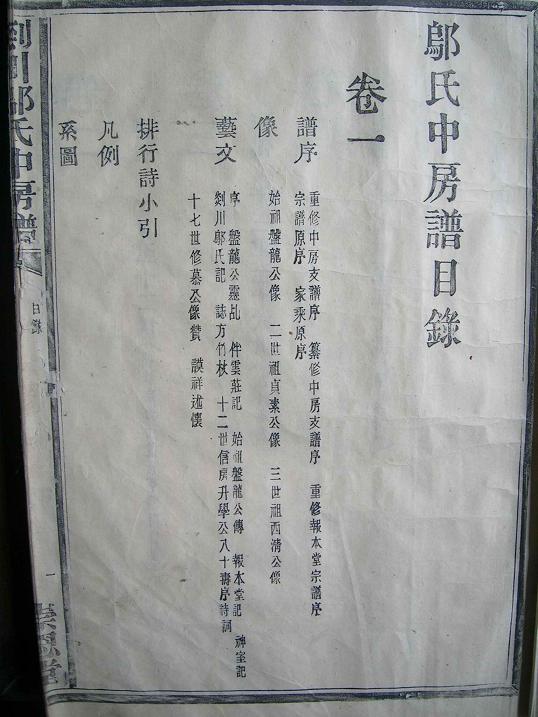 鄔氏中房譜目錄
卷一
譜序
重修中房支譜序 纂修中房支譜序 重修報本堂宗譜序
宗譜原序 家乘原序
像
始祖盤龍公像 二世祖貞素公像 三世祖西清公像
藝文
序 盤龍公靈乩 伴雲莊記 始祖盤龍公傳 報本堂記 神室記
剡川鄔氏記 誌方竹杖 十二世信房升學公八十壽序詩詞
十七世修慕公像贊 謨祥述懷
排行詩小引
凡例
系圖
剡川鄔氏中房譜
目錄
一